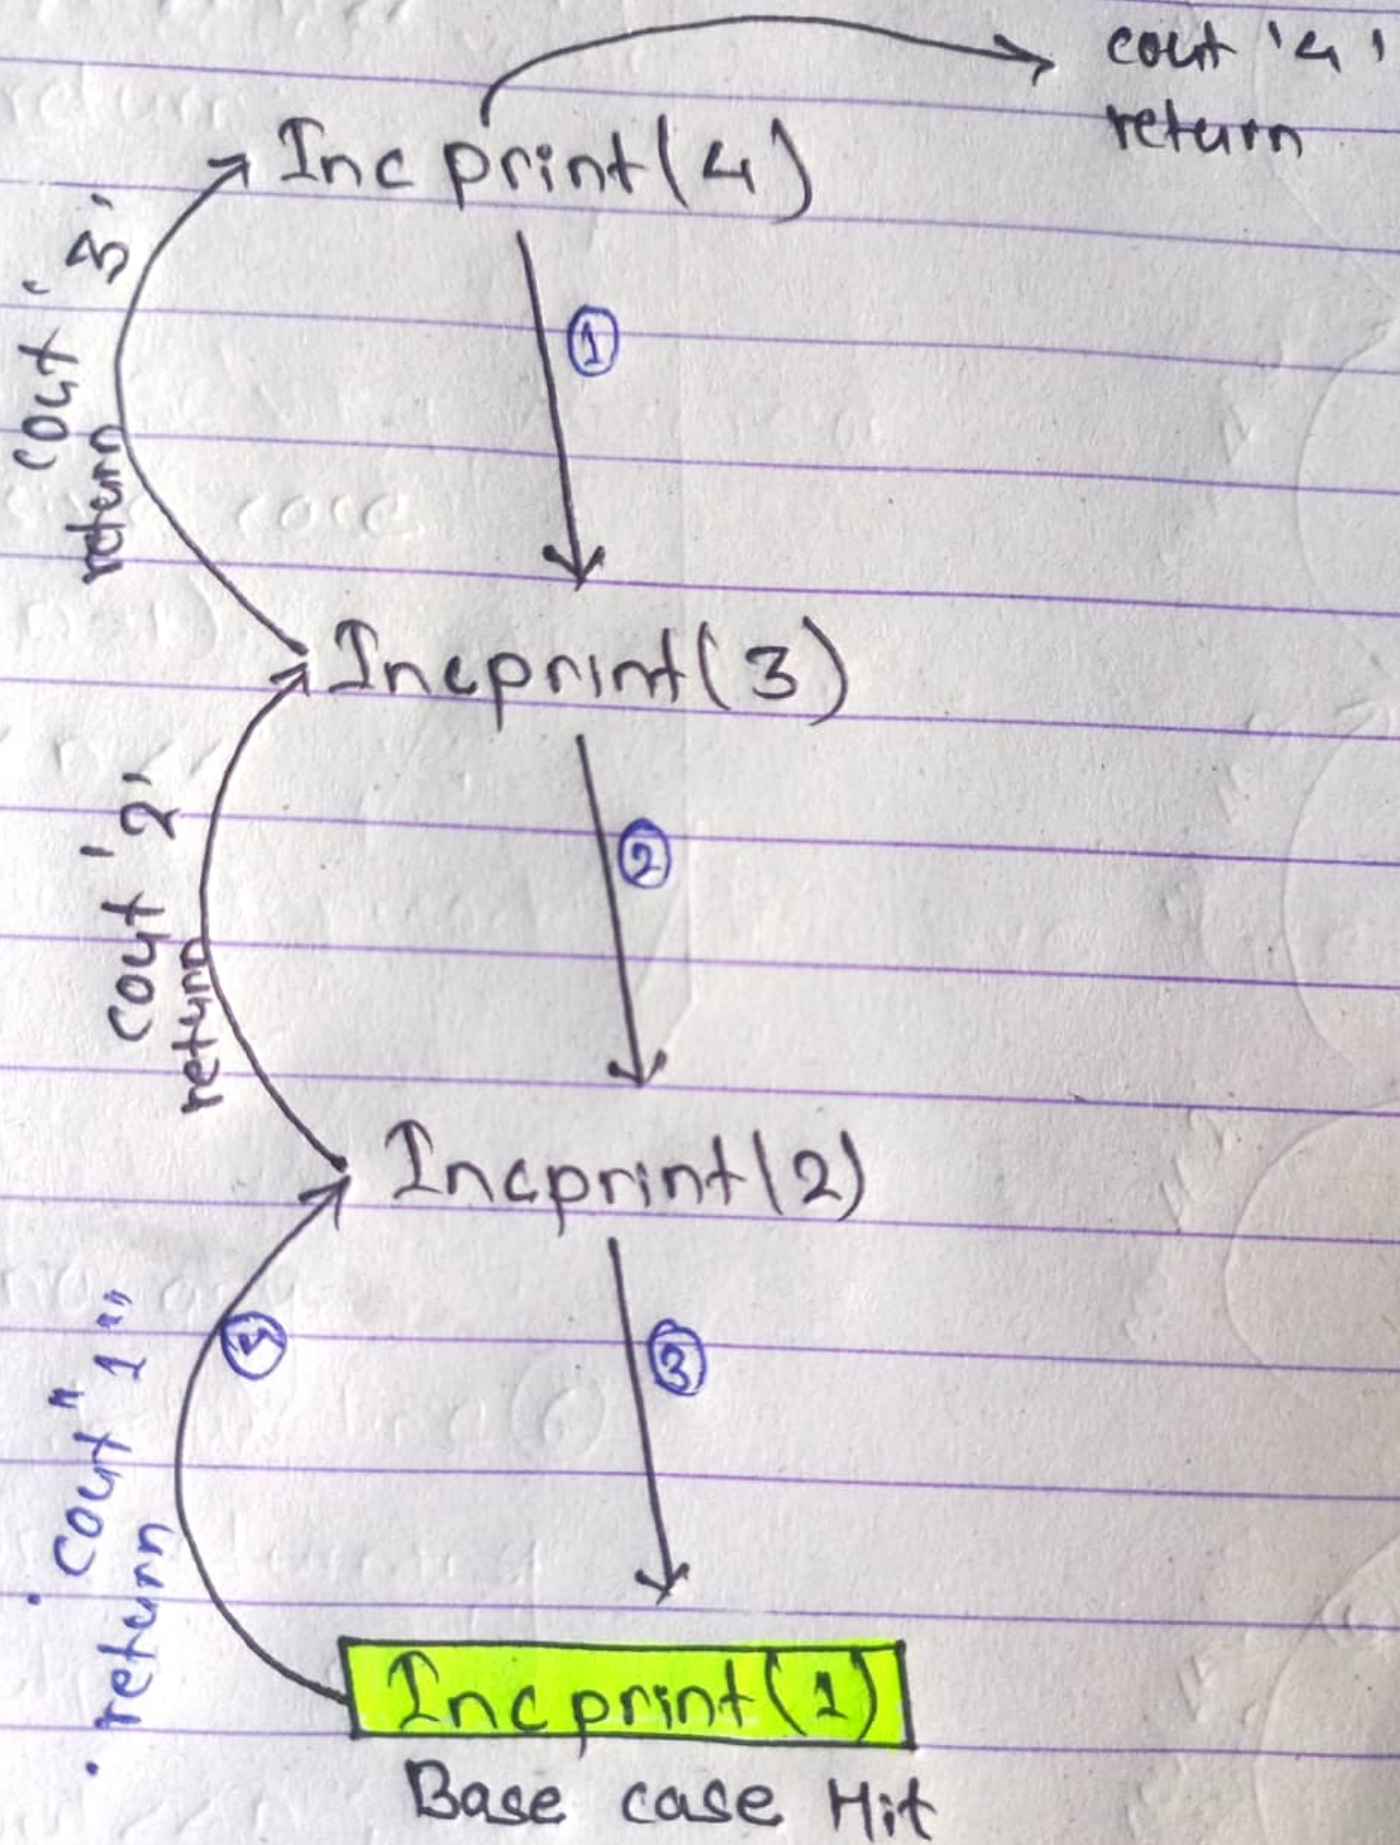 cout '4'
return
Inc print(4)
cout '3'
return
1
Incprint(3)
cout '2'
return
2
Incprint(2)
cout "1"
return
3
Inc print(1)
Base case Hit